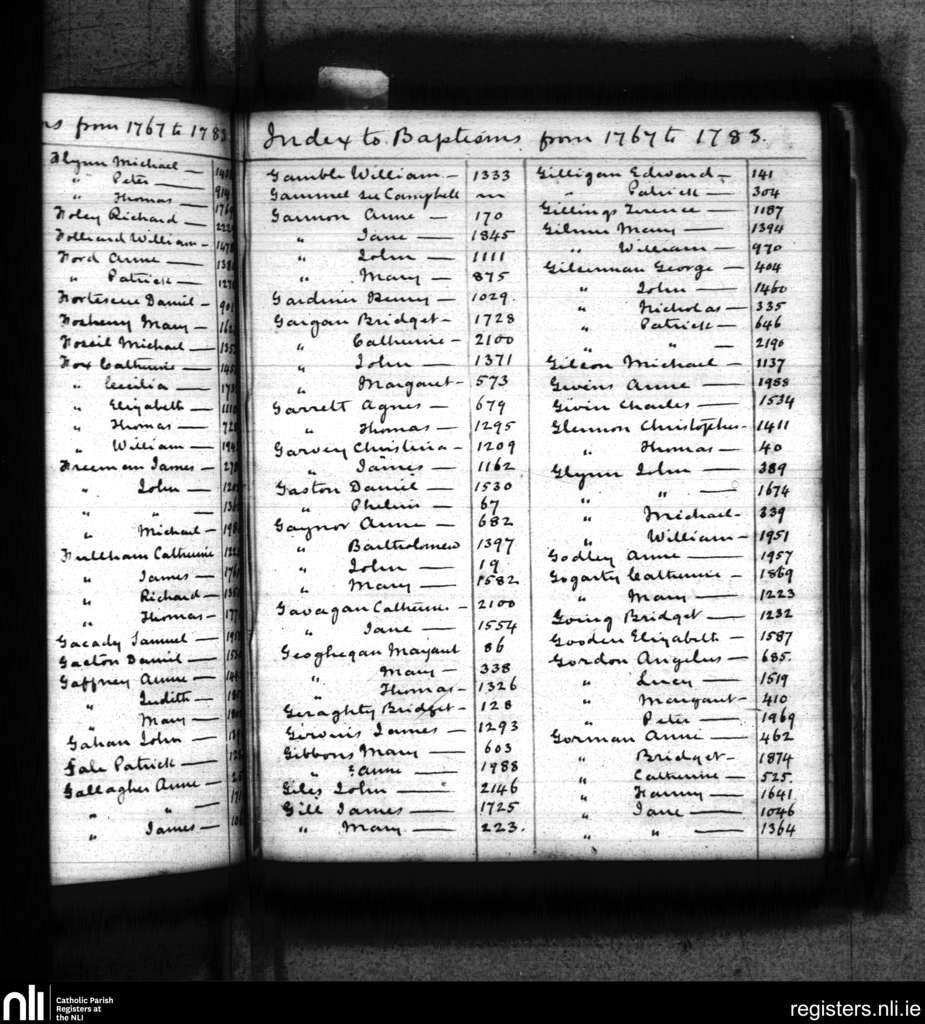 from 1767 to 1783
Flynn Michael —
" Peter —
" Thomas —
Foley Richard —
Folliard William —
Ford Anne —
" Patrick —
Fortescue Daniel –
Mary —
Michael —
Fox Catherine —
" Cecilia —
" Elizabeth —
" Thomas —
" William —
Freeman James —
" John —
" " —
" Michael —
Fullham Catherine
" James —
" Richard —
" Thomas —
Gacady Samuel —
Gaeton Daniel —
Gaffney Anne —
" Judith —
" Mary —
Gahan John —
Gale Patrick —
Gallagher Anne —
" " —
" James —
Index to Baptisms from 1767 to 1783.
Gamble William – 1333
Gammel see Campbell
Gannon Anne — 170
" Jane — 1845
" John — 1111
" Mary — 875
Gardiner Henry — 1029.
Gargan Bridget – 1728
" Catherine – 2100
" John — 1371
" Margaret – 573
Garrett Agnes — 679
" Thomas — 1295
Garvey Christina – 1209
" James — 1162
Gaston Daniel — 1530
" Phelim — 67
Gaynor Anne — 682
" Bartholomew 1397
" John — 19
" Mary — 1582
Gavagan Catherine – 2100
" Jane — 1554
Geoghegan Margaret 86
" Mary — 338
" Thomas – 1326
Geraghty Bridget – 128
James — 1293
Gibbons Mary — 603
" Anne — 1988
Giles John — 2146
Gill James — 1725
" Mary — 223.
Gilligan Edward – 141
" Patrick — 304
Gillings Terence — 1187
Gilmer Mary — 1394
" William — 970
George — 404
" John — 1460
" Nicholas — 335
" Patrick — 646
" " — 2190
Gilson Michael — 1137
Givens Anne — 1988
Givin Charles — 1534
Glennon Christopher – 1411
" Thomas — 40
Glynn John — 389
" " — 1674
" Michael – 339
" William – 1951
Godley Anne — 1957
Gogarty Catherine – 1869
" Mary — 1223
Going Bridget — 1232
Gooden Elizabeth — 1587
Gordon Angelus — 685.
" Lucy — 1519
" Margaret – 410
" Peter — 1969
Gorman Anne — 462
" Bridget – 1874
" Catherine – 525.
" Fanny — 1641
" Jane — 1046
" " — 1364
nli
Catholic Parish
Registers at
the NLI
registers.nli.ie